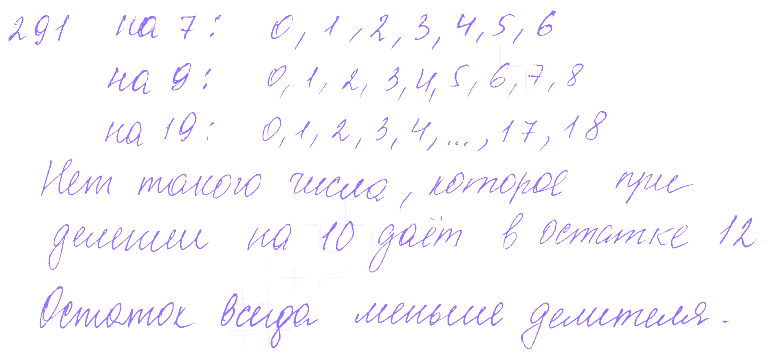 291 на 7: 0, 1, 2, 3, 4, 5, 6
на 9: 0, 1, 2, 3, 4, 5, 6, 7, 8
на 19: 0, 1, 2, 3, 4, ..., 17, 18
Нет такого числа, которое при
делении на 10 даёт в остатке 12
Остаток всегда меньше делителя.